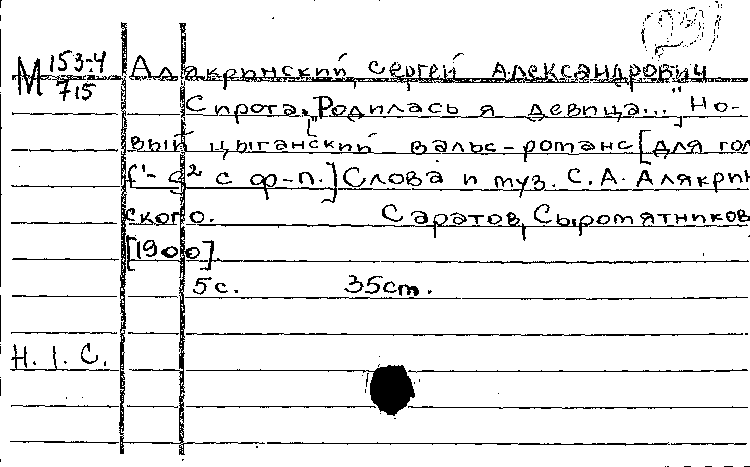 М 153-4
715
Алякринский, Сергей Александрович
Сирота. „Родилась я девица...“ Но-
вый цыганский вальс-романс [для гол
f¹- g² с ф-п.] Слова и муз. С.А. Алякрин
ского. Саратов, Сыромятников
[1900].
5 с. 35 см.
Н. I. С.